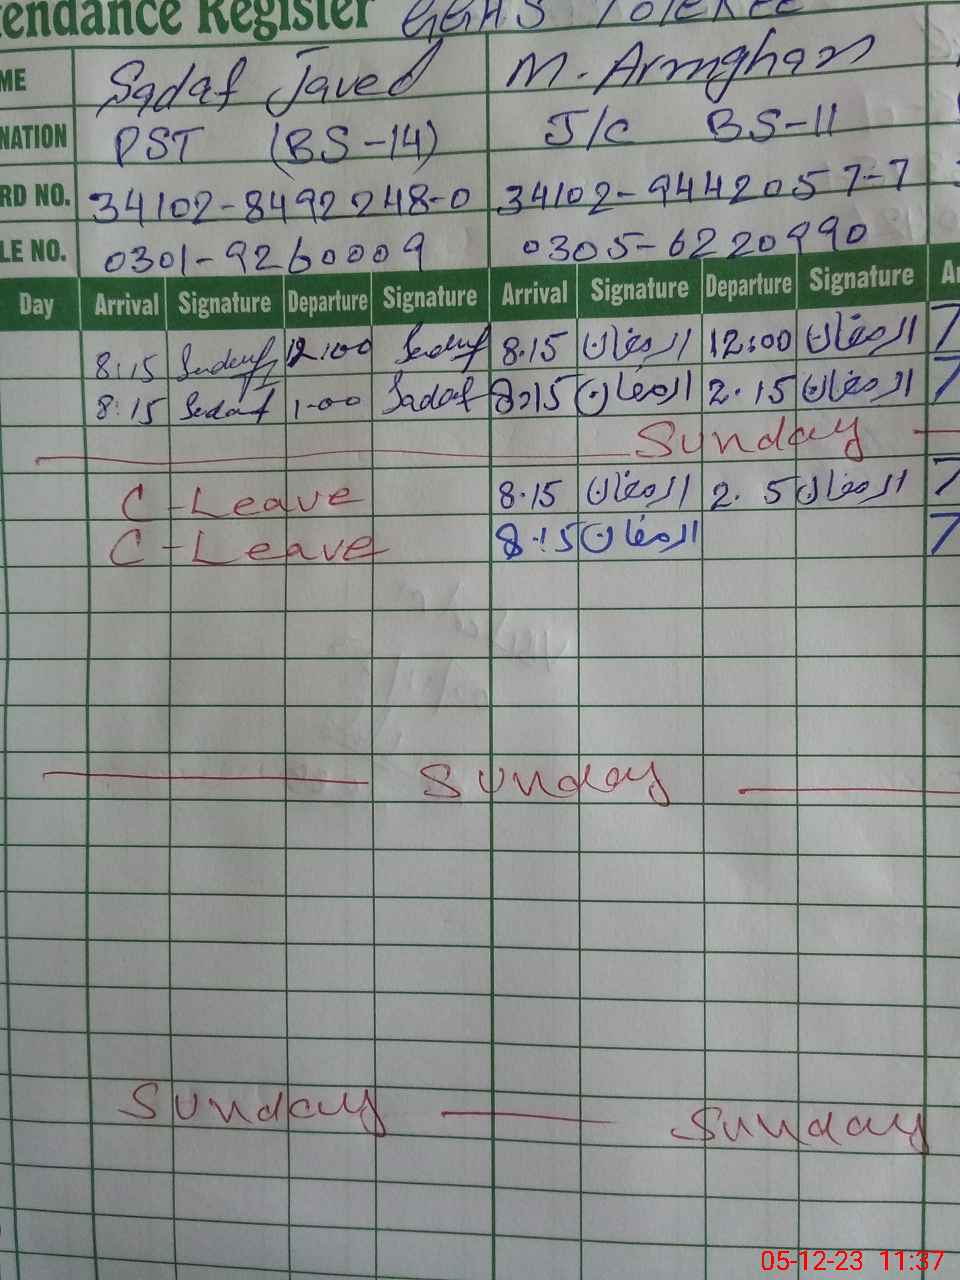 tendance Register GGHS
ME Sadaf Javed M. Armghan
NATION PST (BS-14) J/C BS-11
RD NO. 34102-8492248-0 34102-9442057-7
LE NO. 0301-9260009 0305-6220990
Day Arrival Signature Departure Signature Arrival Signature Departure Signature Ar
8:15 Sadaf 12:00 Sadaf 8.15 ارمغان 12:00 ارمغان 7
8:15 Sadaf 1-00 Sadaf 8:15 ارمغان 2.15 ارمغان 7
Sunday
C-Leave 8.15 ارمغان 2.5 ارمغان 7
C-Leave 8.15 ارمغان 7
Sunday
Sunday Sunday
05-12-23 11:37